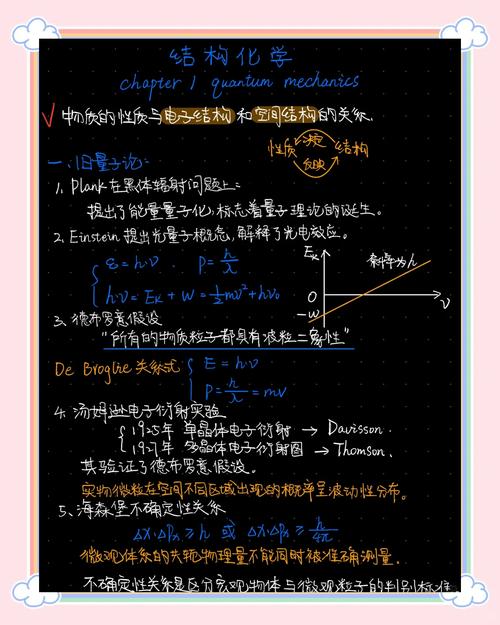 结构化学
chapter 1 quantum mechanics
√ 物质的性质与电子结构和空间结构的关系.
性质 决定 反映 结构
一、旧量子论:
1. Plank 在黑体辐射问题上:
提出了能量量子化,标志着量子理论的诞生。
2. Einstein 提出光量子概念,解释了光电效应。
ε = h·ν . P = h/λ
h·ν = Ek + W = 1/2 mv² + hν₀
Ek
斜率为h
O
-W
ν
3. 德布罗意假设
"所有的物质粒子都具有波粒二象性"
De Broglie 关系式 { E = h·ν
P = h/λ = mv
4. 汤姆逊电子衍射实验
{ 1925年 单晶体电子衍射 → Davisson.
1927年 多晶体电子衍射图 → Thomson.
其验证了德布罗意假设。
实物微粒在空间不同区域出现的概率呈波动性分布。
5、海森堡不确定性关系
Δx·ΔPx ≥ h 或 Δx·ΔPx ≥ h/4π
微观体系的共轭物理量不能同时被准确测量.
不确定性关系是区分宏观物体与微观粒子的判别标准